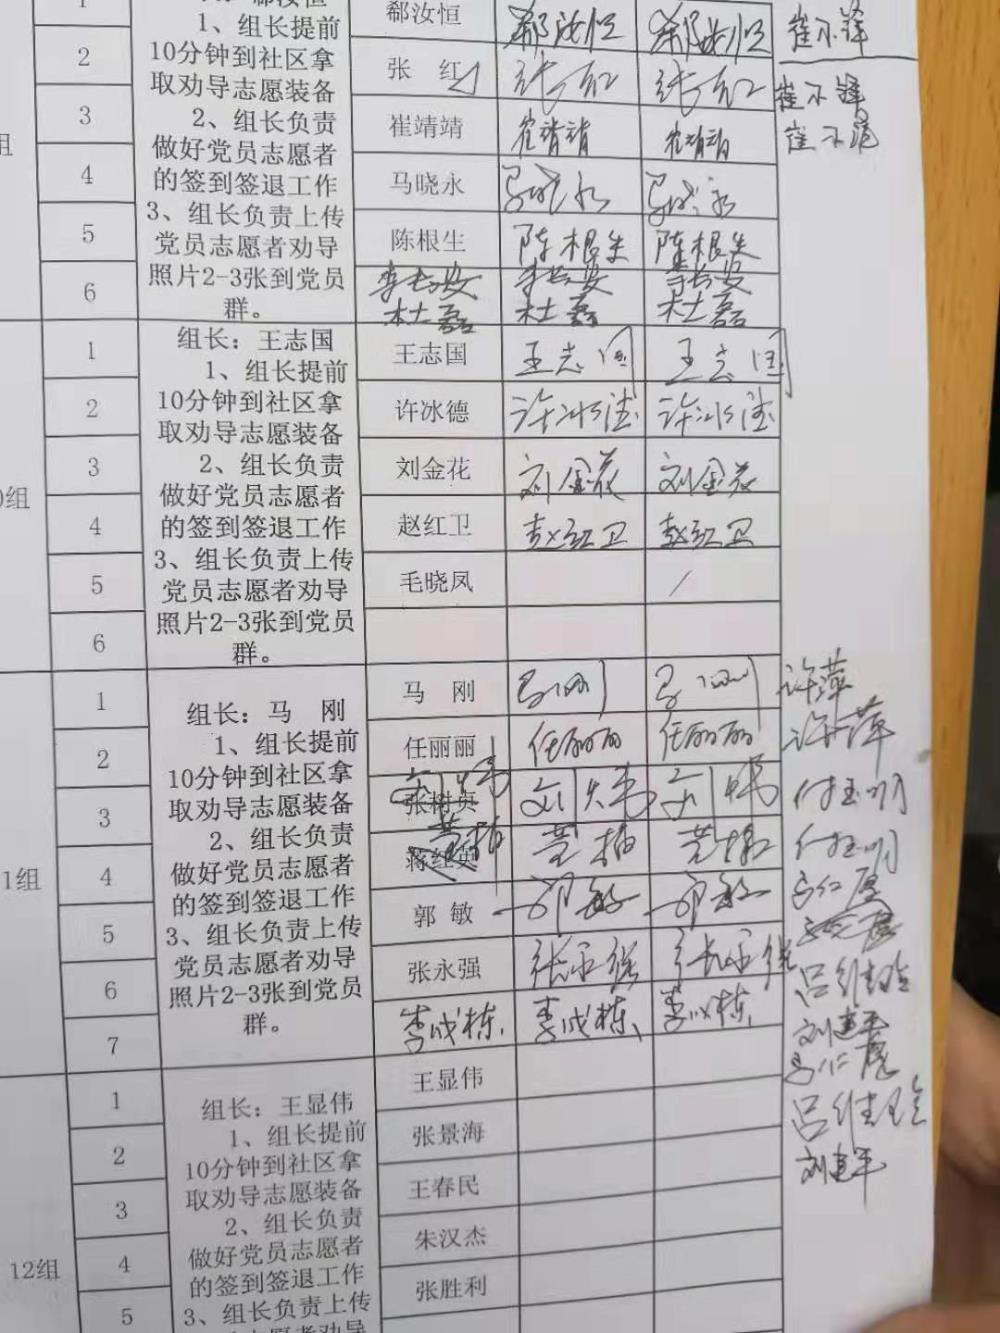 1 组长：郗汝恒 郗汝恒 郗汝恒 郗汝恒
1、组长提前
10分钟到社区拿
取劝导志愿装备
2、组长负责
做好党员志愿者
的签到签退工作
3、组长负责上传
党员志愿者劝导
照片2-3张到党员
群。
组
2 张 红 张红 张红
3 崔靖靖 崔靖靖 崔靖靖
4 马晓永 马晓永 马晓永
5 陈根生 陈根生 陈根生
6 李长安 李长安 李长安
杜磊 杜磊 杜磊
0组
组长：王志国
1、组长提前
10分钟到社区拿
取劝导志愿装备
2、组长负责
做好党员志愿者
的签到签退工作
3、组长负责上传
党员志愿者劝导
照片2-3张到党员
群。
1 王志国 王志国 王志国
2 许冰德 许冰德 许冰德
3 刘金花 刘金花 刘金花
4 赵红卫 赵红卫 赵红卫
5 毛晓凤 /
6
1组
组长：马 刚
1、组长提前
10分钟到社区拿
取劝导志愿装备
2、组长负责
做好党员志愿者
的签到签退工作
3、组长负责上传
党员志愿者劝导
照片2-3张到党员
群。
1 马 刚 马刚 马刚 许萍
2 任丽丽 任丽丽 任丽丽 许萍
3 张树贵
4 蒋红英
5 郭 敏 郭敏 郭敏
6 张永强 张永强 张永强
7 李成栋 李成栋 李成栋
刘建平
刘建平
12组
组长：王显伟
1、组长提前
10分钟到社区拿
取劝导志愿装备
2、组长负责
做好党员志愿者
的签到签退工作
3、组长负责上传
党员志愿者劝导
1 王显伟
2 张景海
3 王春民
4 朱汉杰
5 张胜利